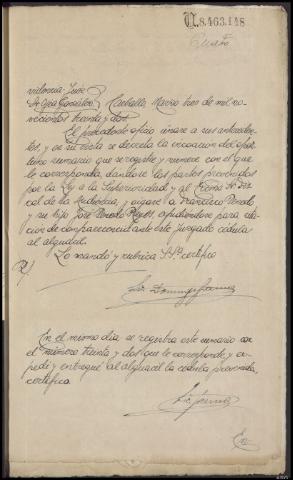 N.8.463.148
videncia-Juez
Sr Gra González Carballo Marzo tres de mil no-
vecientos treinta y dos.
El precedente oficio únase a sus anteceden-
tes, y en su vista se decreta la incoacion del opor-
tuno sumario que se registre y numere con el que
le corresponda, dandose los partes prevenidos
por la Ley a la Superioridad y al Excmo Sr Fis-
cal de la Audiencia, y oigase a Francisco Penedo
y su hijo José Penedo Reyes, expidiendose para cita-
cion de comparecencia ante este Juzgado cédula
al alguacil.
Lo mando y rubrica SSª certifico
Lic. Domingo
En el mismo dia se registra este sumario con
el número treinta y dos que le corresponde, y ex-
pedí y entregué al alguacil la cedula prevenida,
certifico
Lic.
En